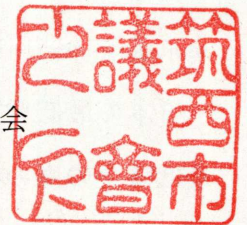 筑西市
議會
之印
会